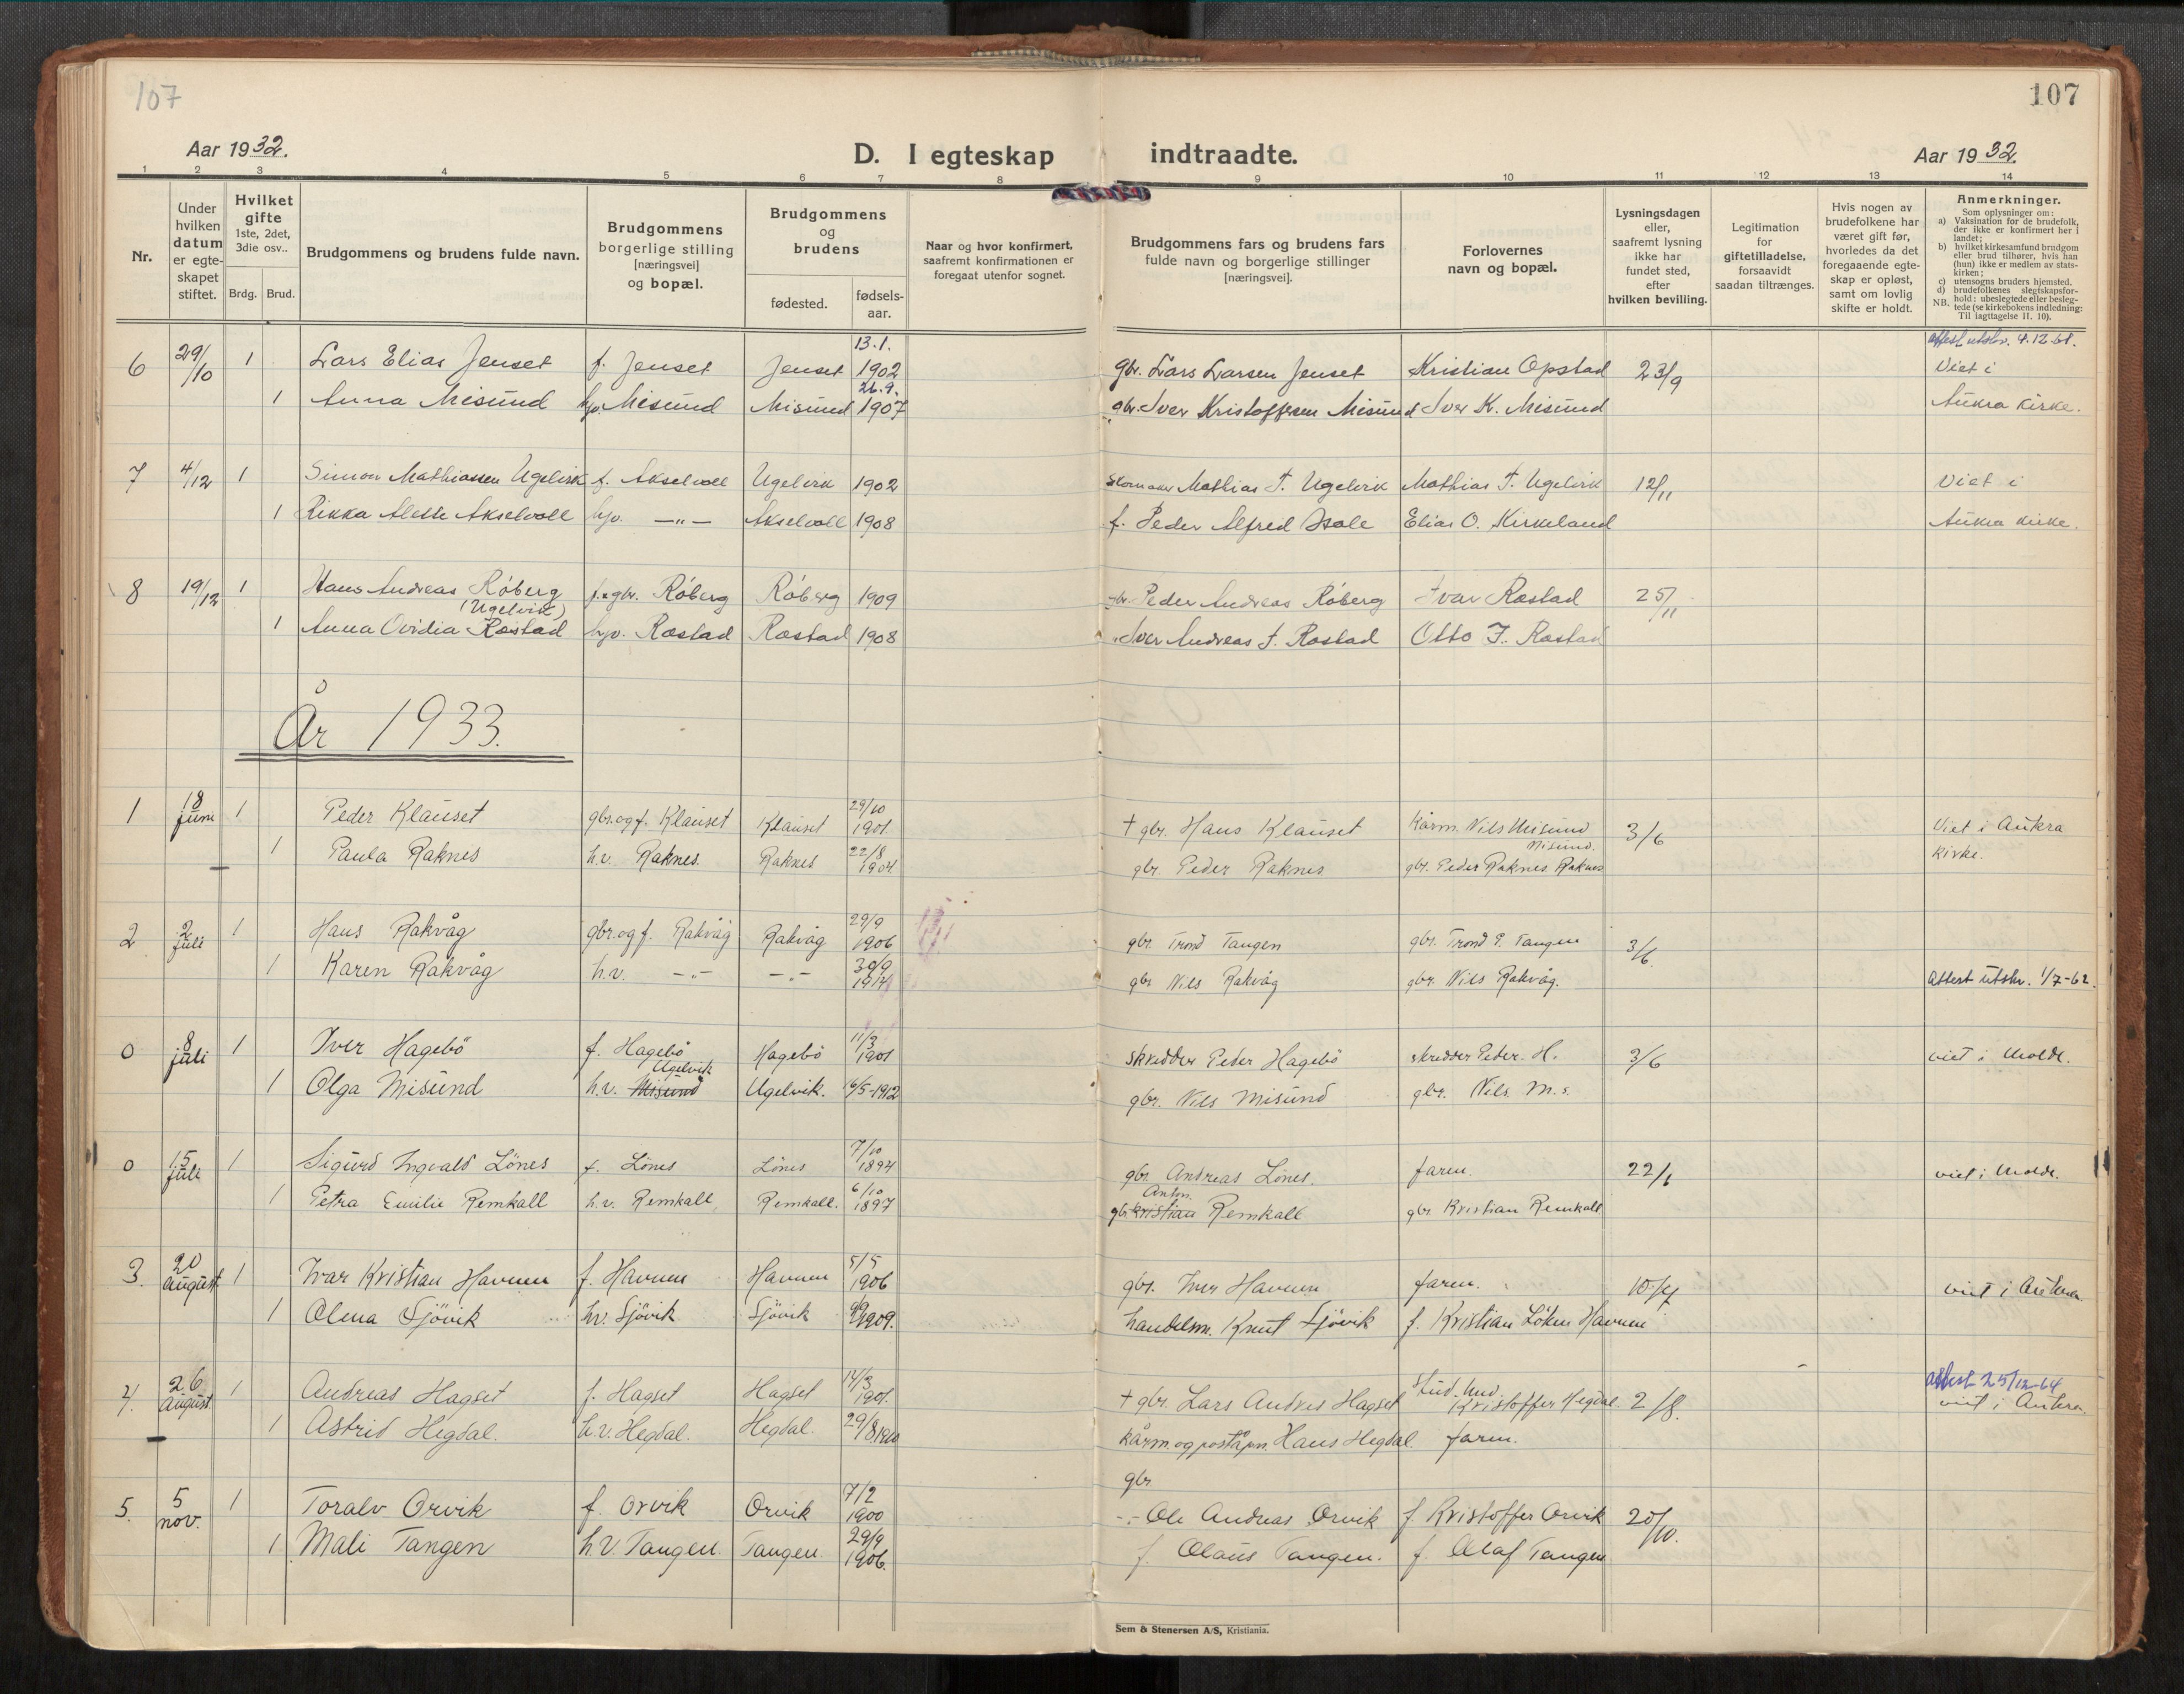 107
107
Aar 1932.
D. I egteskap indtraadte.
Aar 1932.
1 2 3 4 5 6 7 8 9 10 11 12 13 14
Nr.
Under hvilken datum er egte-skapet stiftet.
Hvilket gifte 1ste, 2det, 3die osv..
Brdg. Brud.
Brudgommens og brudens fulde navn.
Brudgommens borgerlige stilling [næringsvei] og bopæl.
Brudgommens og brudens
fødested. fødsels-aar.
Naar og hvor konfirmert, saafremt konfirmationen er foregaat utenfor sognet.
Brudgommens fars og brudens fars fulde navn og borgerlige stillinger [næringsvei].
Forlovernes navn og bopæl.
Lysningsdagen eller, saafremt lysning ikke har fundet sted, efter hvilken bevilling.
Legitimation for giftetilladelse, forsaavidt saadan tiltrænges.
Hvis nogen av brudefolkene har været gift før, hvorledes da det foregaaende egte-skap er opløst, samt om lovlig skifte er holdt.
Anmerkninger.
Som oplysninger om:
a) Vaksination for de brudefolk, der ikke er konfirmert her i landet;
b) hvilket kirkesamfund brudgom eller brud tilhører, hvis han (hun) ikke er medlem av stats-kirken;
c) utensogns bruders hjemsted.
d) brudefolkenes slegtskapsfor-hold: ubeslegtede eller besleg-tede (se kirkebokens indledning:
NB. Til iagttagelse II. 10).
13.1. attest utskr. 4.12.61.
6 29/10 1 Lars Elias Jenset f. Jenset Jenset 1902 gbr. Lars Larsen Jenset Kristian Opstad 23/9 Viet i
26.9.
1 Anna Misund hjv. Misund Misund 1907 gbr. Iver Kristoffersen Misund Iver K. Misund Aukra kirke.
7 4/12 1 Simon Mathiassen Ugelvik f. Akselvoll Ugelvik 1902 Mathias T. Ugelvik Mathias T. Ugelvik 12/11 Viet i
1 Rikka Alette Akselvoll hjv. —"— Akselvoll 1908 f. Peder Alfred Elias O. Kirkeland Aukra kirke.
8 19/12 1 Hans Andreas Röberg f. & gbr. Röberg Röberg 1909 gbr. Peder Andreas Röberg Ivar Rostad 25/11
(Ugelvik)
1 Anna Ovidia Rostad hjv. Rostad Rostad 1908 Iver Andreas I. Rostad Otto I. Rostad
År 1933.
1 18 juni 1 Peder Klauset gbr. og f. Klauset Klauset 29/10 1901 † gbr. Hans Klauset Kårm. Nils Misund Misund. 3/6 Viet i Aukra
1 Paula Raknes h.v. Raknes. Raknes 22/8 1904 gbr. Peder Raknes gbr. Peder Raknes Raknes kirke.
2 2 juli 1 Hans Rakvåg gbr. og f. Rakvåg Rakvåg 29/9 1906 gbr. Trond Tangen gbr. Trond P. Tangen 3/6
1 Karen Rakvåg h.v. —"— —"— 30/9 1914 gbr Nils Rakvåg gbr. Nils Rakvåg. Attest utskr. 1/7-62.
0 8 juli 1 Iver Hagebö f. Hagebö Hagebö 11/3 1901 skredder Peder Hagebö skredder Peder. H. 3/6 viet i Molde.
Ugelvik
1 Olga Misund h.v. Misund Ugelvik. 16/5-1912 gbr. Nils Misund gbr. Nils M.s.
0 15 juli 1 Sigurd Ingvald Lönes f. Lönes Lönes 7/10 1894 gbr. Andreas Lönes. faren. 22/6 viet i Molde.
Anton.
1 Petra Emilie Remkall h.v. Remkall Remkall. 6/10 1897 gbr. Kristian Remkall gbr Kristian Remkall
3. 20 august 1 Ivar Kristian Havnen f. Havnen Havnen 5/5 1906 gbr. Iver Havnen faren. 10/7 viet i Aukra
1 Olena Sjövik hv. Sjövik Sjövik 1909. handelsm. Knut Sjövik f. Kristian Löken Havnen
4. 26 august 1 Andreas Hagset f. Hagset Hagset 14/3 1901. † gbr. Lars Andres Hagset stud. Kristoffer Hegdal. 2/8. attest 25/12-64 viet i Aukra
1 Astrid Hegdal. h.v. Hegdal. Hegdal. 29/8 1910 kårm. og poståpn. Hans Hegdal. faren.
gbr
5. 5 nov. 1 Toralv Orvik f. Orvik Orvik 7/2 1900 -"- Ole Andreas Orvik f. Kristoffer Orvik 20/10.
1 Mali Tangen h.v. Tangen. Tangen. 29/9 1906. f. Olaus Tangen. f. Olaf Tangen
Sem & Stenersen A/S, Kristiania.